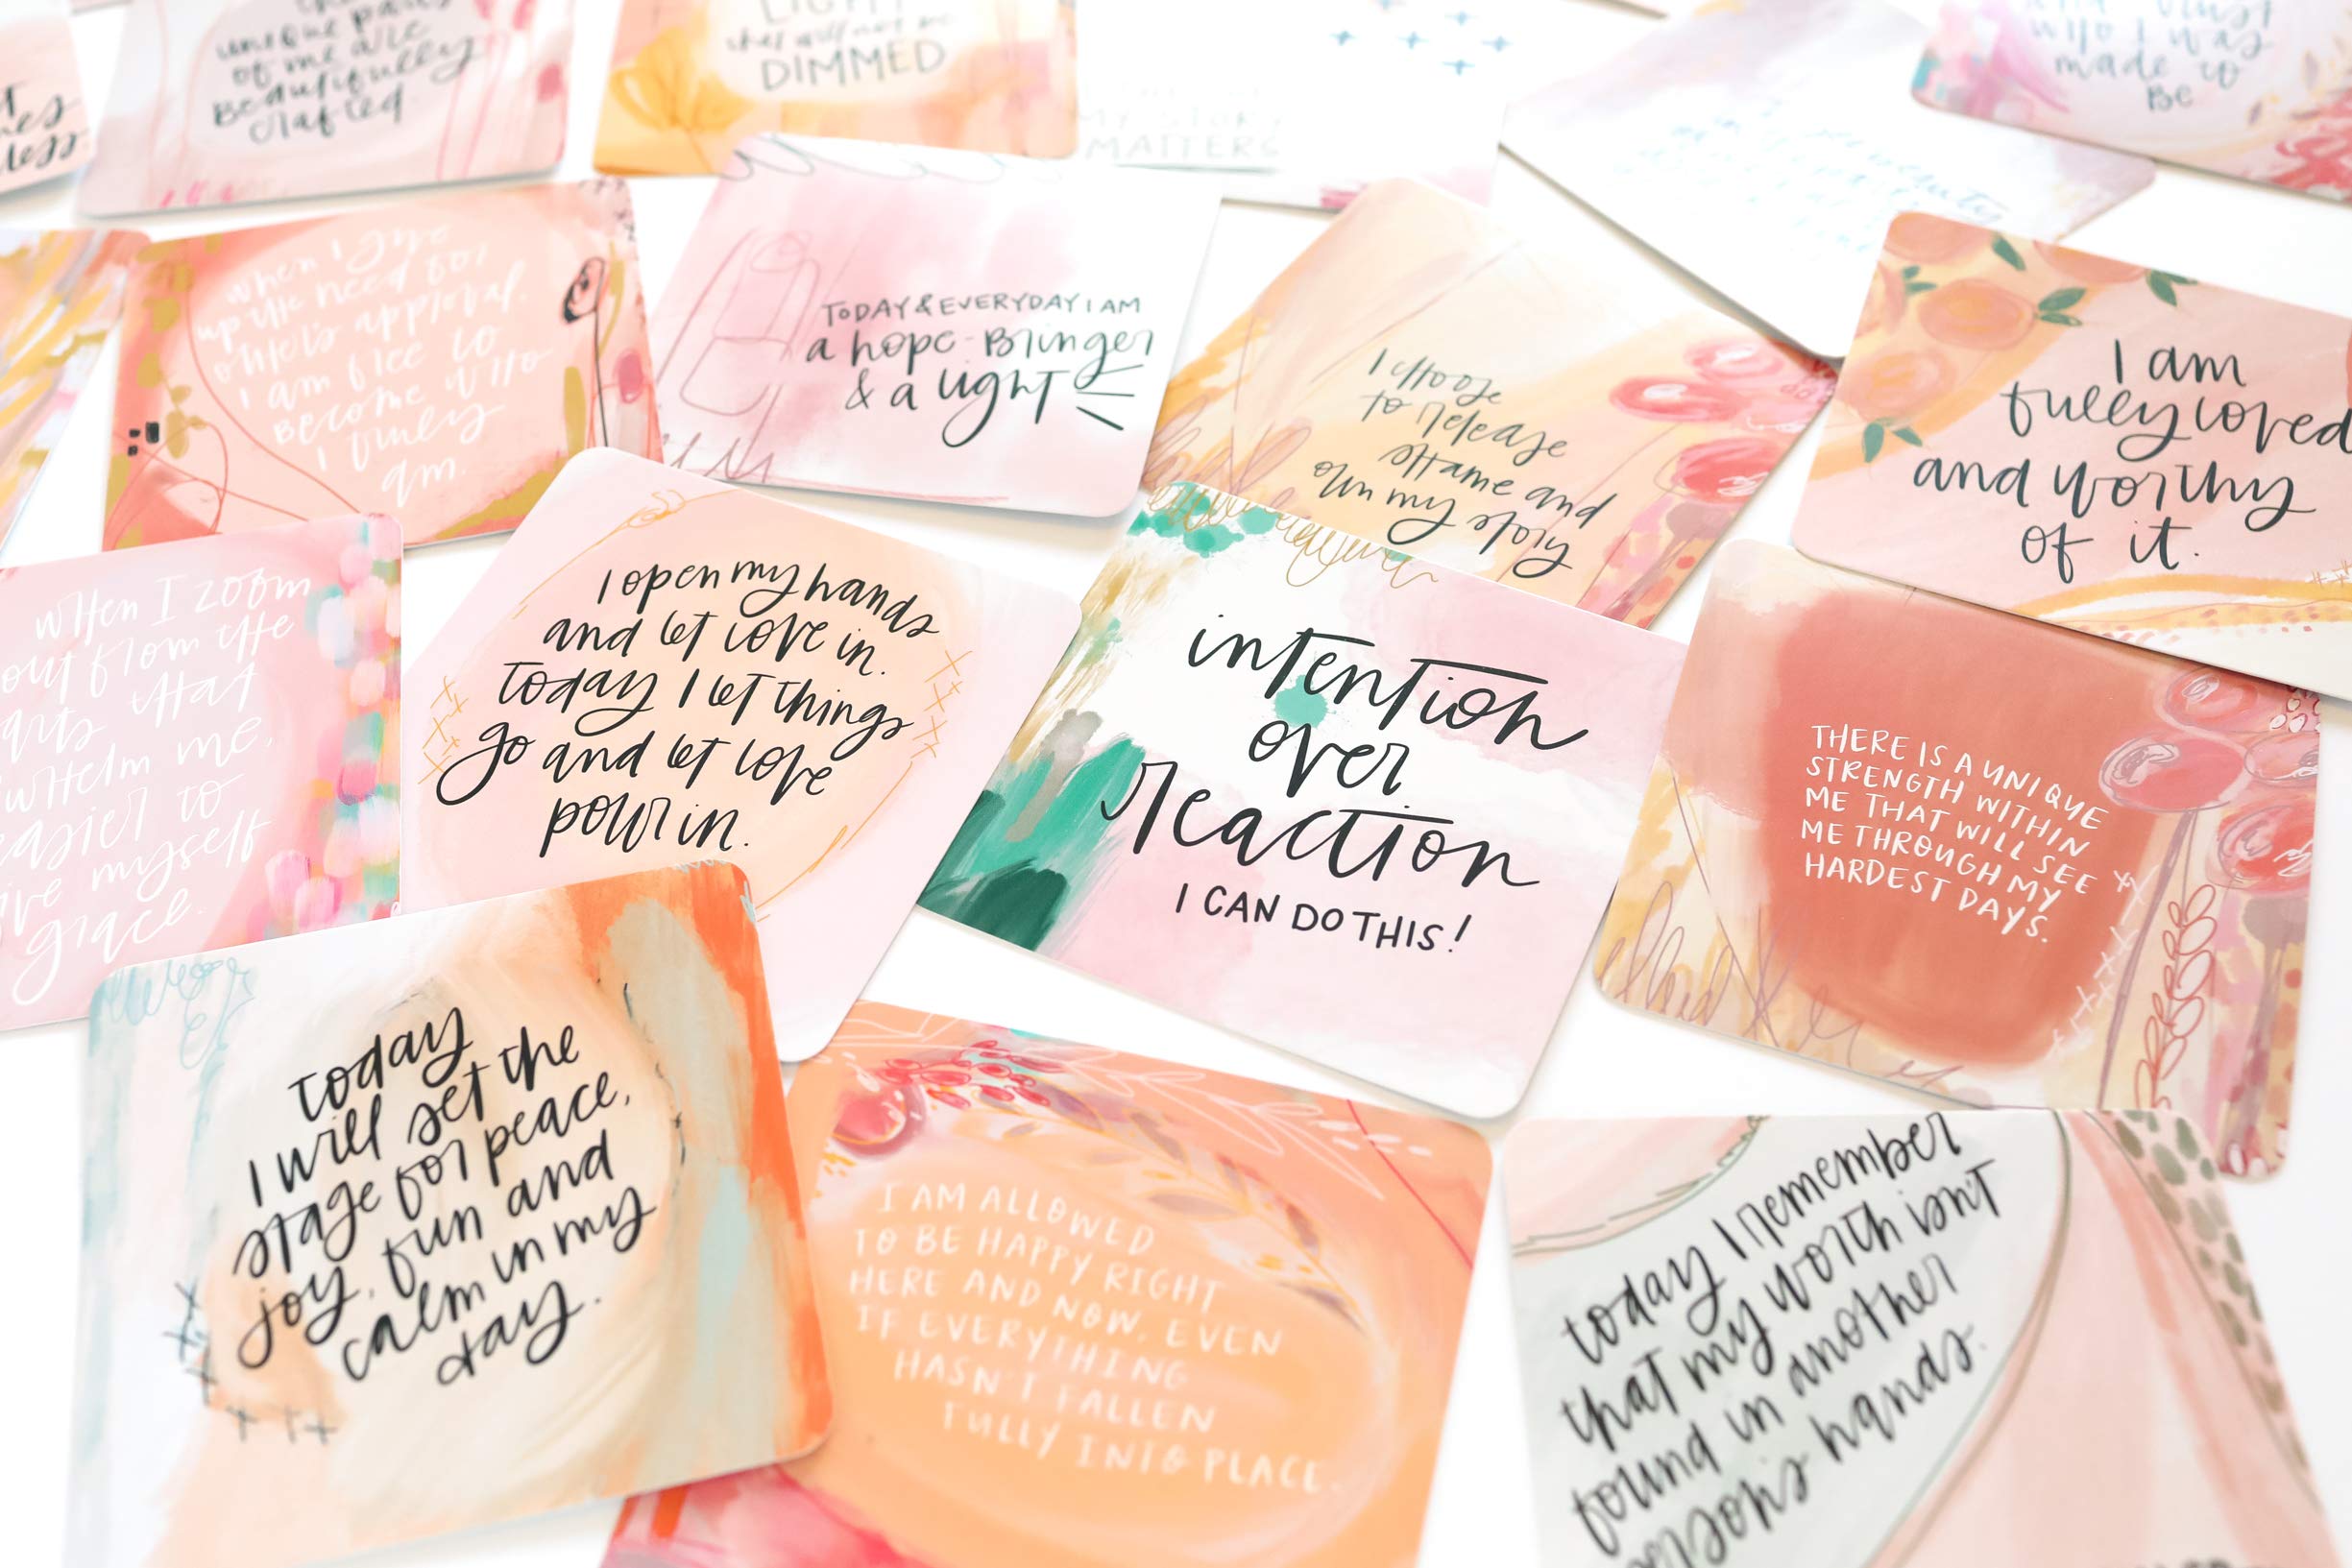 unique parts
of me are
beautifully
crafted.
LIGHT
that will not be
DIMMED
MY STORY
MATTERS
who I was
made to
Be
when I give
up the need for
other's approval.
I am free to
become who
I truly
am.
TODAY & EVERYDAY I AM
a hope-Bringer
& a light
I choose
to release
shame and
own my story
I am
fully loved
and worthy
of it.
when I zoom
out from the
that
me,
easier to
myself
grace.
I open my hands
and let love in.
today I let things
go and let love
pour in.
intention
over
reaction
I CAN DO THIS!
THERE IS A UNIQUE
STRENGTH WITHIN
ME THAT WILL SEE
ME THROUGH MY
HARDEST DAYS.
today
I will set the
stage for peace,
joy, fun and
calm in my
day.
I AM ALLOWED
TO BE HAPPY RIGHT
HERE AND NOW, EVEN
IF EVERYTHING
HASN'T FALLEN
FULLY INTO PLACE.
today I remember
that my worth isn't
found in another
person's hands.